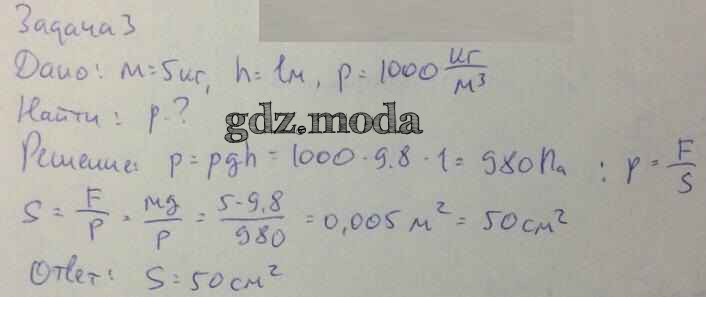 Задача 3
Дано: м=5кг, h=1м, ρ=1000 кг/м³
Найти: p-?
gdz.moda
Решение: p=ρgh=1000·9.8·1=980Па ; p=F/S
S=F/p=mg/p=5-9,8/980=0,005м²=50см²
Ответ: S=50см²